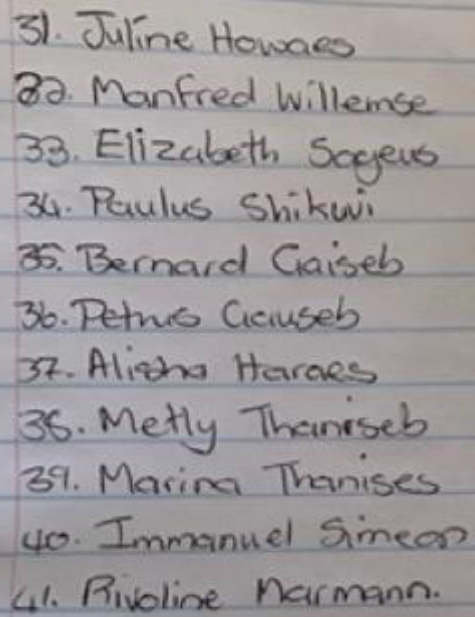 31. Juline Howaes
32. Manfred Willemse
33. Elizabeth Sageus
34. Paulus Shikwi
35. Bernard Gaiseb
36. Petrus Gauseb
37. Alisha Haraes
38. Metly Thaniseb
39. Marina Thanises
40. Immanuel Simeon
41. Rivoline Marmann.